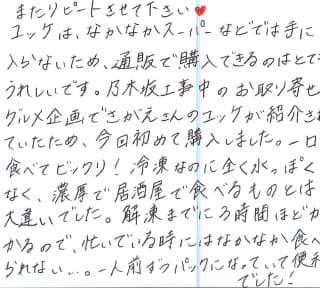 またリピートさせて下さい♥
ユッケは、なかなかスーパーなどでは手に
入らないため、通販で購入できるのはとても
うれしいです。乃木坂工事中のお取り寄せ
グルメ企画でさがえさんのユッケが紹介され
ていたため、今回初めて購入しました。一口
食べてビックリ!冷凍なのに全く水っぽく
なく、濃厚で居酒屋で食べるものとは
大違いでした。解凍までに3時間ほどか
かるので、忙しいでいる時にはなかなか食べ
られない...。一人前ずつパックになっていて便利
でした!